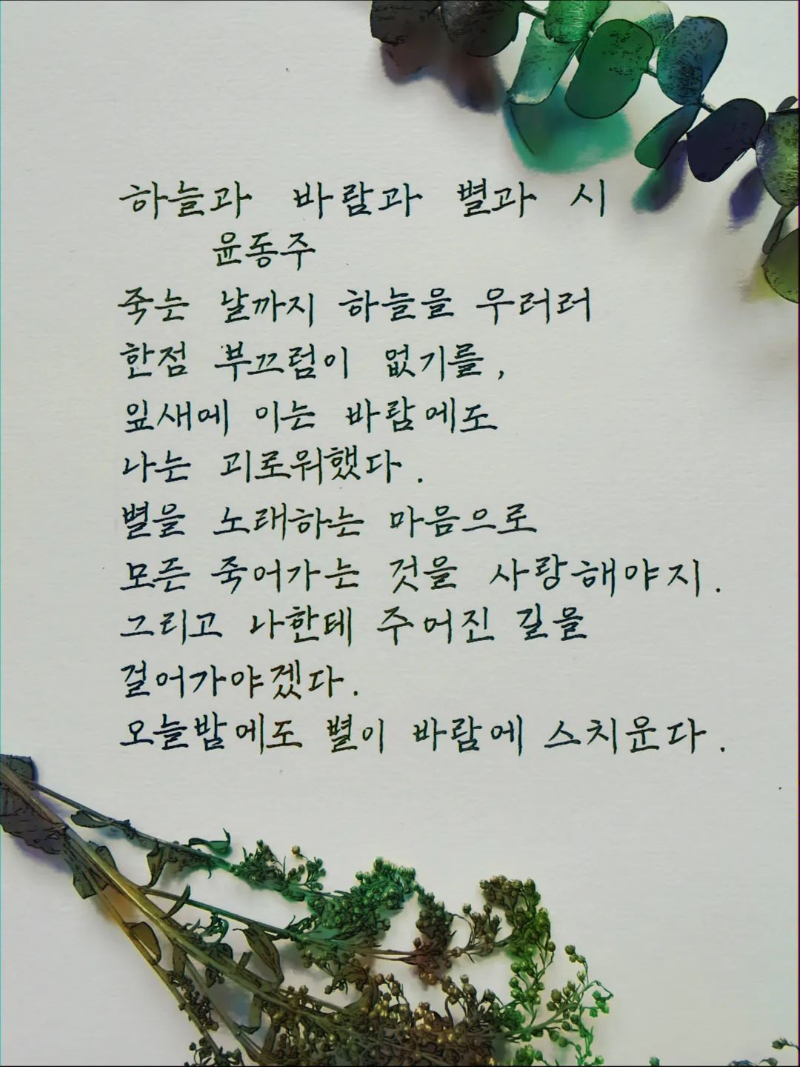 하늘과 바람과 별과 시
윤동주
죽는 날까지 하늘을 우러러
한점 부끄럼이 없기를,
잎새에 이는 바람에도
나는 괴로워했다.
별을 노래하는 마음으로
모든 죽어가는 것을 사랑해야지.
그리고 나한테 주어진 길을
걸어가야겠다.
오늘밤에도 별이 바람에 스치운다.